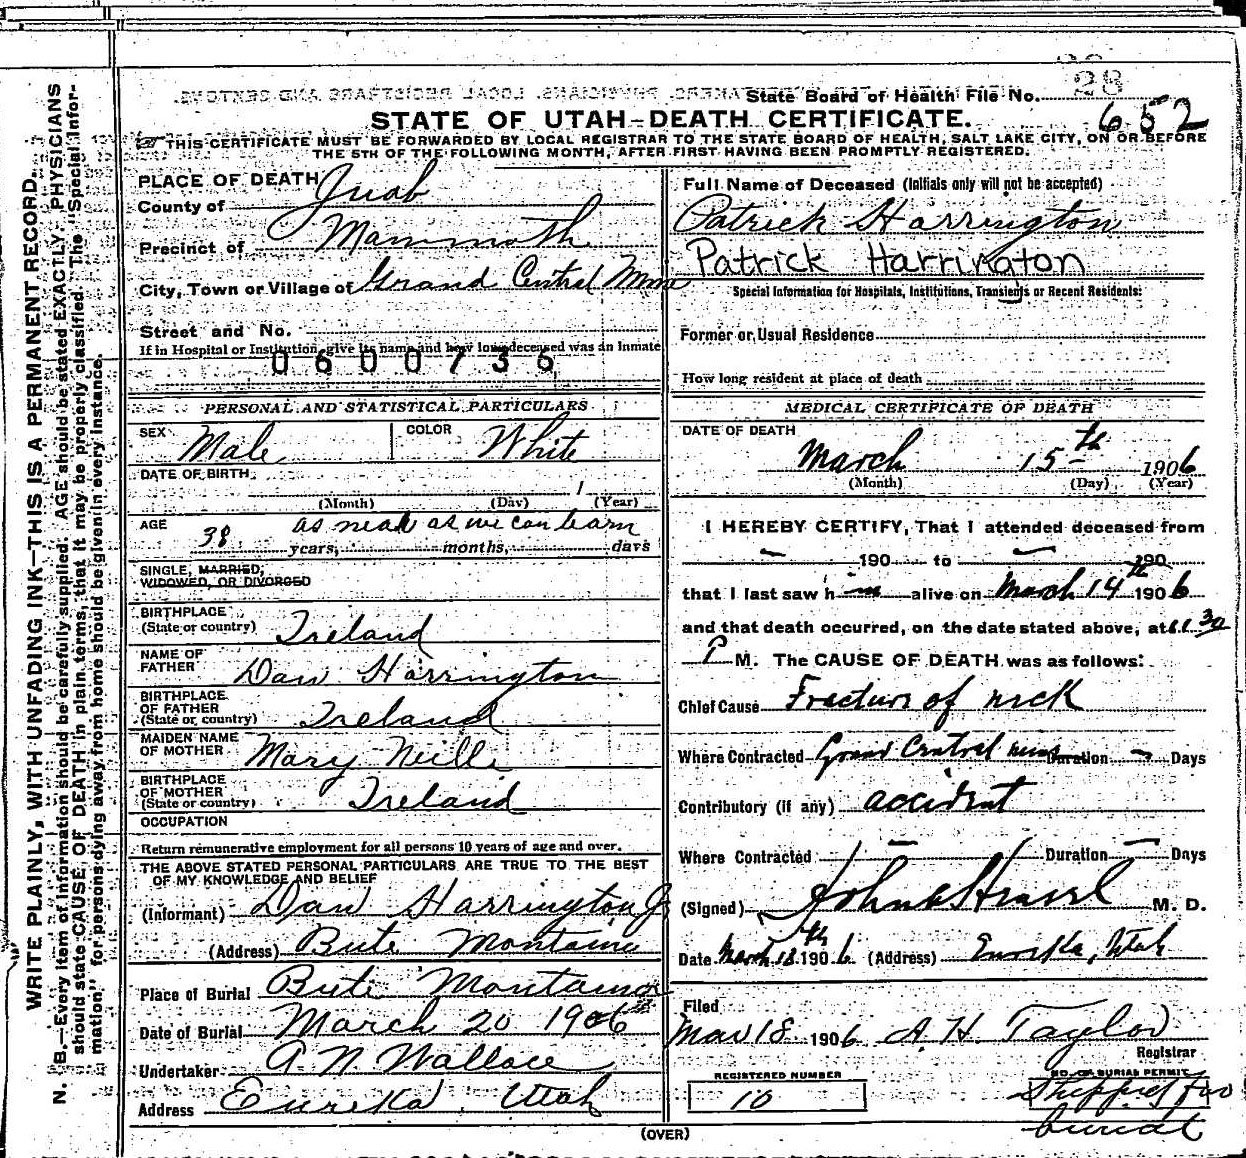 State Board of Health File No. 28
652
STATE OF UTAH—DEATH CERTIFICATE.
THIS CERTIFICATE MUST BE FORWARDED BY LOCAL REGISTRAR TO THE STATE BOARD OF HEALTH, SALT LAKE CITY, ON OR BEFORE
THE 5TH OF THE FOLLOWING MONTH, AFTER FIRST HAVING BEEN PROMPTLY REGISTERED.
WRITE PLAINLY, WITH UNFADING INK—THIS IS A PERMANENT RECORD.
N. B.—Every item of information should be carefully supplied. AGE should be stated EXACTLY. PHYSICIANS
should state CAUSE OF DEATH in plain terms, that it may be properly classified. The "Special Infor-
mation," for persons dying away from home should be given in every instance.
PLACE OF DEATH
County of Juab
Precinct of Mammoth
City, Town or Village of Grand Central Mine
Street and No.
If in Hospital or Institution, give its name and how long deceased was an Inmate
0600736
PERSONAL AND STATISTICAL PARTICULARS
SEX Male COLOR White
DATE OF BIRTH
1
(Month) (Day) (Year)
AGE as near as we can learn
38 years, months, days
SINGLE, MARRIED,
WIDOWED, OR DIVORCED
BIRTHPLACE
(State or country) Ireland
NAME OF
FATHER Dan Harrington
BIRTHPLACE
OF FATHER
(State or country) Ireland
MAIDEN NAME
OF MOTHER Mary Neill
BIRTHPLACE
OF MOTHER
(State or country) Ireland
OCCUPATION
Return remunerative employment for all persons 10 years of age and over.
THE ABOVE STATED PERSONAL PARTICULARS ARE TRUE TO THE BEST
OF MY KNOWLEDGE AND BELIEF
(Informant) Dan Harrington Jr
(Address) Bute Montaina
Place of Burial Bute Montaina
Date of Burial March 20 1906
Undertaker A. N. Wallace
Address Eureka, Utah
Full Name of Deceased (Initials only will not be accepted)
Patrick Harrington
Patrick Harrington
Special Information for Hospitals, Institutions, Transients or Recent Residents:
Former or Usual Residence
How long resident at place of death
MEDICAL CERTIFICATE OF DEATH
DATE OF DEATH
March 15th 1906
(Month) (Day) (Year)
I HEREBY CERTIFY, That I attended deceased from
190 to 190
that I last saw him alive on March 14th 1906
and that death occurred, on the date stated above, at 11.30
P M. The CAUSE OF DEATH was as follows:
Chief Cause Fracture of neck
Where Contracted Grand Central mine Duration Days
Contributory (if any) accident
Where Contracted Duration Days
(Signed) M. D.
Date March 18th 1906 (Address) Eureka, Utah
Filed
Mar 18 1906 A. H. Taylor
Registrar
REGISTERED NUMBER
10
NO. OF BURIAL PERMIT
Shipped for
burial
(OVER)